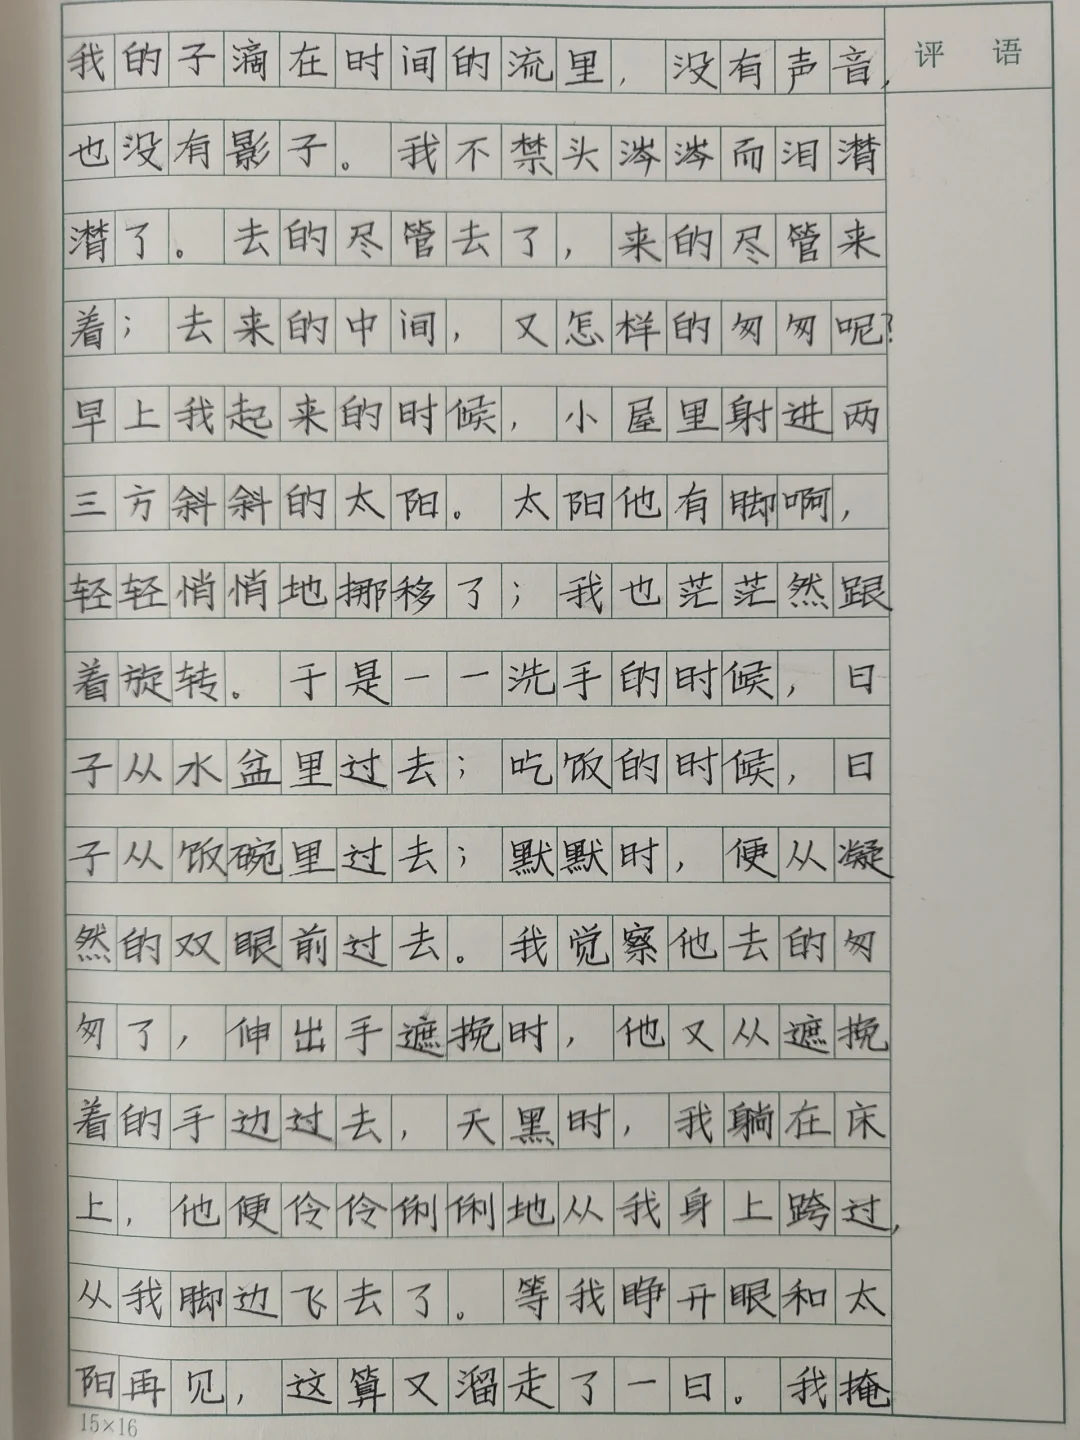 我的子滴在时间的流里，没有声音，
评 语
也没有影子。我不禁头涔涔而泪潸
潸了。去的尽管去了，来的尽管来
着；去来的中间，又怎样的匆匆呢？
早上我起来的时候，小屋里射进两
三方斜斜的太阳。太阳他有脚啊，
轻轻悄悄地挪移了；我也茫茫然跟
着旋转。于是——洗手的时候，日
子从水盆里过去；吃饭的时候，日
子从饭碗里过去；默默时，便从凝
然的双眼前过去。我觉察他去的匆
匆了，伸出手遮挽时，他又从遮挽
着的手边过去，天黑时，我躺在床
上，他便伶伶俐俐地从我身上跨过，
从我脚边飞去了。等我睁开眼和太
阳再见，这算又溜走了一日。我掩
15×16